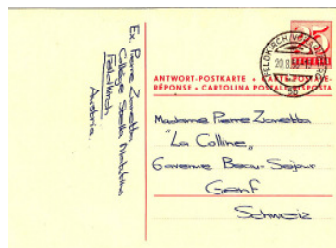 Ex. Pierre Zanetta
Collège Stella Matutina
Feldkirch
Austria
25
FELDKIRCH
20.8.
ANTWORT-POSTKARTE + CARTE POSTALE-
RÉPONSE + CARTOLINA POSTALE RISPOSTA
Madame Pierre Zanetta
"La Colline"
6 avenue Beau-Sejour
Genf
Schweiz